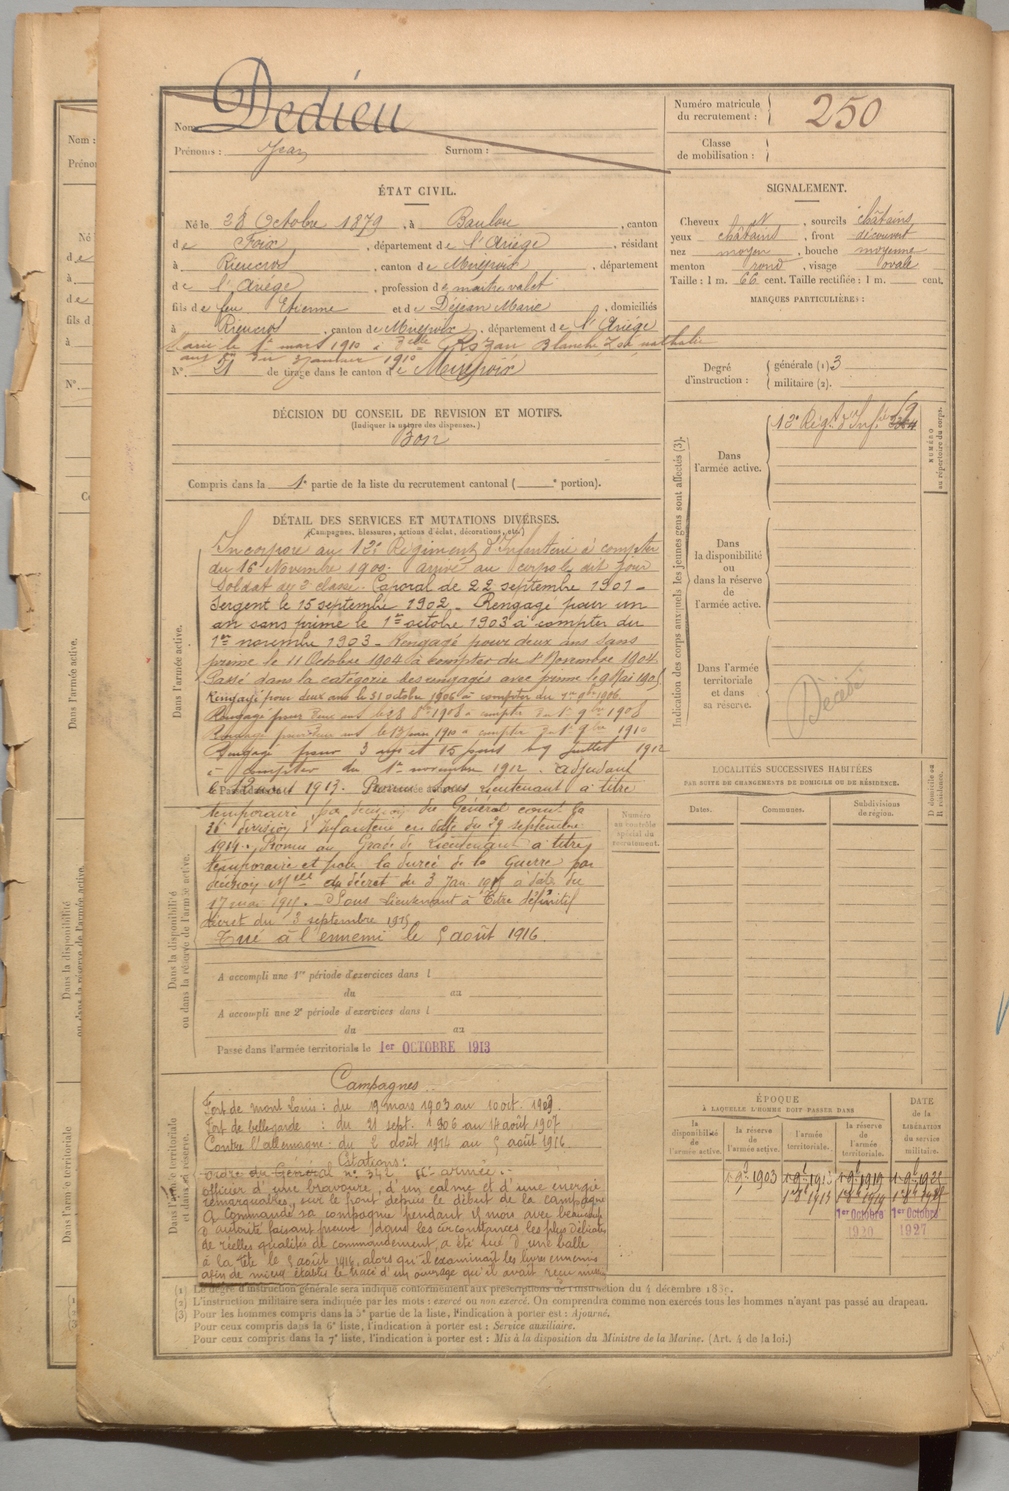 Nom : Dedieu
Prénoms : Jean Surnom :
Numéro matricule du recrutement : 250
Classe de mobilisation :
ÉTAT CIVIL.
Né le 28 Octobre 1879, à Baulou, canton
de Foix, département de l'Ariège, résidant
à Rieucros, canton de Mirepoix, département
de l'Ariège, profession de maître valet
fils de feu Etienne et de Déjean Marie, domiciliés
à Rieucros, canton de Mirepoix, département de l'Ariège
Marié le 1er mars 1910 à Delle Rozan Blanche Zoé nathalie
aut on du 3 janvier 1910
N° 21 de tirage dans le canton de Mirepoix
SIGNALEMENT.
Cheveux , sourcils châtains
yeux châtains, front découvert
nez moyen, bouche moyenne
menton rond, visage ovale
Taille : 1 m. 66 cent. Taille rectifiée : 1 m. cent.
MARQUES PARTICULIÈRES :
Degré d'instruction : générale (1) 3
militaire (2).
DÉCISION DU CONSEIL DE REVISION ET MOTIFS.
(Indiquer la nature des dispenses.)
Bon
Compris dans la 1e partie de la liste du recrutement cantonal ( e portion).
DÉTAIL DES SERVICES ET MUTATIONS DIVERSES.
(Campagnes, blessures, actions d'éclat, décorations, etc.)
Dans l'armée active.
Incorporé au 12e Régiment d'Infanterie à compter
du 16 Novembre 1900. Arrivé au corps le dit jour
Soldat de 2e classe. Caporal de 22 septembre 1901 -
Sergent le 15 septembre 1902 - Rengagé pour un
an sans prime le 1er octobre 1903 à compter du
1er novembre 1903 - Rengagé pour deux ans sans
prime le 11 Octobre 1904 à compter du 1er Novembre 1904
Passé dans la catégorie des engagés avec prime le 9 Mai 1905
Rengagé pour deux ans le 31 octobre 1906 à compter du 1er 9bre 1906
Rengagé pour deux ans le 28 8bre 1908 à compter du 1er 9bre 1908
Rengagé pour deux ans le 13 1910 à compter du 1er 9bre 1910
Rengagé pour 3 ans et 15 jours le 9 Juillet 1912
à compter du 1er novembre 1912. Adjudant
le 1913. Promu Sous Lieutenant à titre
Dans la disponibilité ou dans la réserve de l'armée active.
temporaire par décision du Général comt la
36e division d'Infanterie en date du 29 septembre
1914. Promu au Grade de Lieutenant à titre
temporaire et pour la durée de la Guerre par
décision Mlle du décret du 3 Jan 1915 à date du
17 mai 1915. - Sous Lieutenant à Titre définitif
décret du 3 septembre 1915
Tué à l'ennemi le 5 août 1916.
A accompli une 1re période d'exercices dans l
du au
A accompli une 2e période d'exercices dans l
du au
Passé dans l'armée territoriale le 1er OCTOBRE 1913
Numéro au contrôle spécial du recrutement.
Dans l'armée territoriale et dans sa réserve.
Campagnes
Fort de mont Louis : du 19 mars 1903 au 10 oct. 1903.
Fort de bellegarde : du 21 sept. 1906 au 14 août 1907
Contre l'allemagne du 2 août 1914 au 5 août 1916
Citations :
ordre du Général no 342 armée.
officier d'une bravoure, d'un calme et d'une energie
remarquables, sur le front depuis le début de la campagne
A Commandé sa compagnie pendant 11 mois avec beaucoup
d'autorité faisant preuve dans les circonstances les plus délicates
de réelles qualités de commandement, a été tué d'une balle
à la tête le 5 août 1916, alors qu'il examinait les lignes ennemies
afin de mieux établir le tracé d'un ouvrage qu'il avait reçu
Indication des corps auxquels les jeunes gens sont affectés (3).
NUMÉRO au répertoire du corps.
Dans l'armée active.
12e Régt d'Infie
Dans la disponibilité ou dans la réserve de l'armée active.
Dans l'armée territoriale et dans sa réserve.
Décédé
LOCALITÉS SUCCESSIVES HABITÉES
PAR SUITE DE CHANGEMENTS DE DOMICILE OU DE RÉSIDENCE.
Dates. Communes. Subdivisions de région. D domicile ou R résidence.
ÉPOQUE
À LAQUELLE L'HOMME DOIT PASSER DANS
la disponibilité de l'armée active. la réserve de l'armée active. l'armée territoriale. la réserve de l'armée territoriale.
DATE de la LIBÉRATION du service militaire.
1er 9bre 1903 1913 1919
1913 1919
1er Octobre 1920
1er Octobre 1927
(1) Le degré d'instruction générale sera indiqué conformément aux prescriptions de l'instruction du 4 décembre 1889.
(2) L'instruction militaire sera indiquée par les mots : exercé ou non exercé. On comprendra comme non exercés tous les hommes n'ayant pas passé au drapeau.
(3) Pour les hommes compris dans la 5e partie de la liste, l'indication à porter est : Ajourné.
Pour ceux compris dans la 6e liste, l'indication à porter est : Service auxiliaire.
Pour ceux compris dans la 7e liste, l'indication à porter est : Mis à la disposition du Ministre de la Marine. (Art. 4 de la loi.)